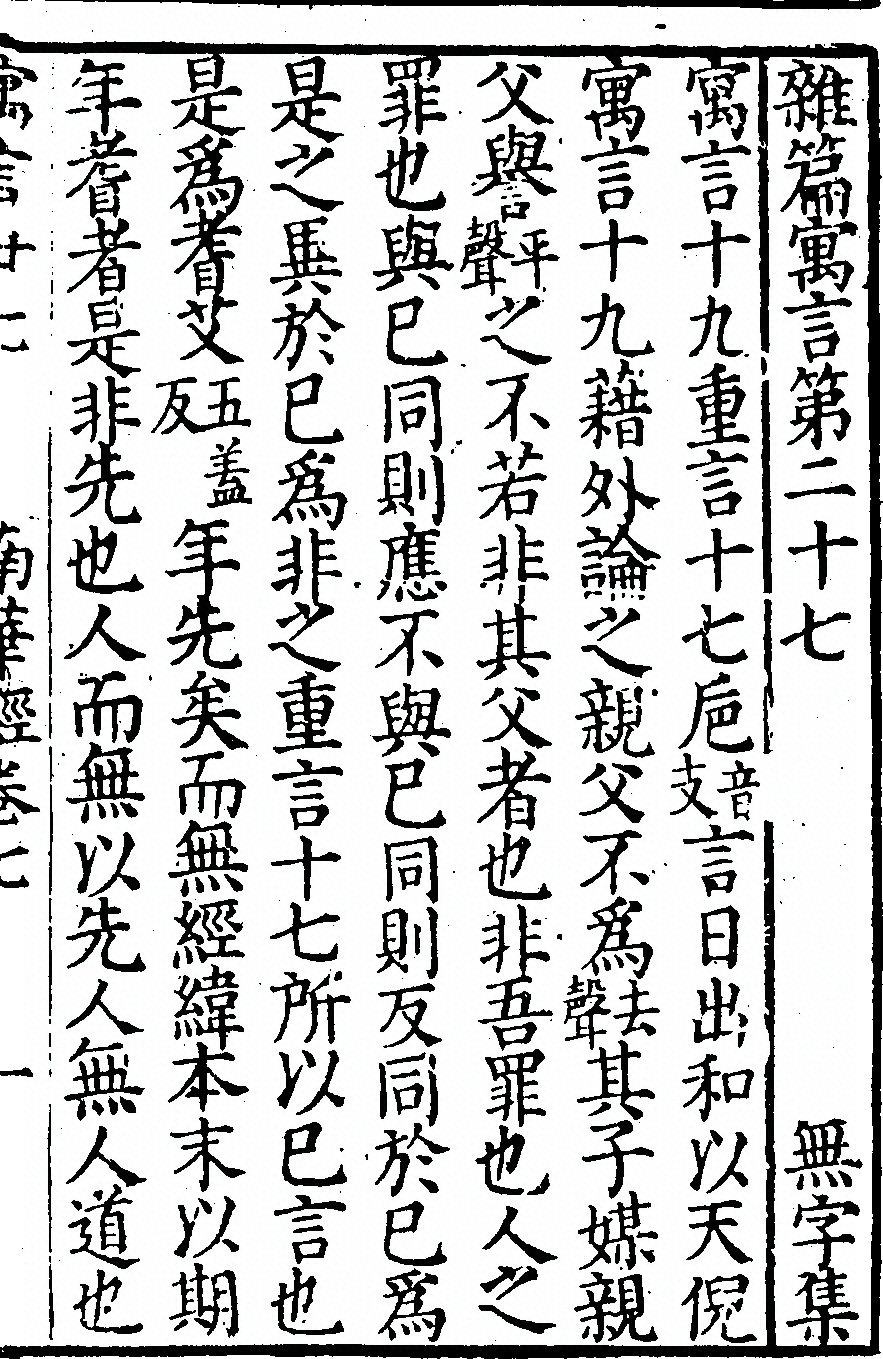 雜篇寓言第二十七　無字集
寓言十九重言十七巵音支言日出和以天倪
寓言十九藉外論之親父不爲去聲其子媒親
父譽平聲之不若非其父者也非吾罪也人之
罪也與已同則應不與已同則反同於已爲
是之異於已爲非之重言十七所以已言也
是爲耆艾五盖反年先矣而無經緯本末以期
年耆者是非先也人而無以先人無人道也
寓言廿七　南華經卷七　一